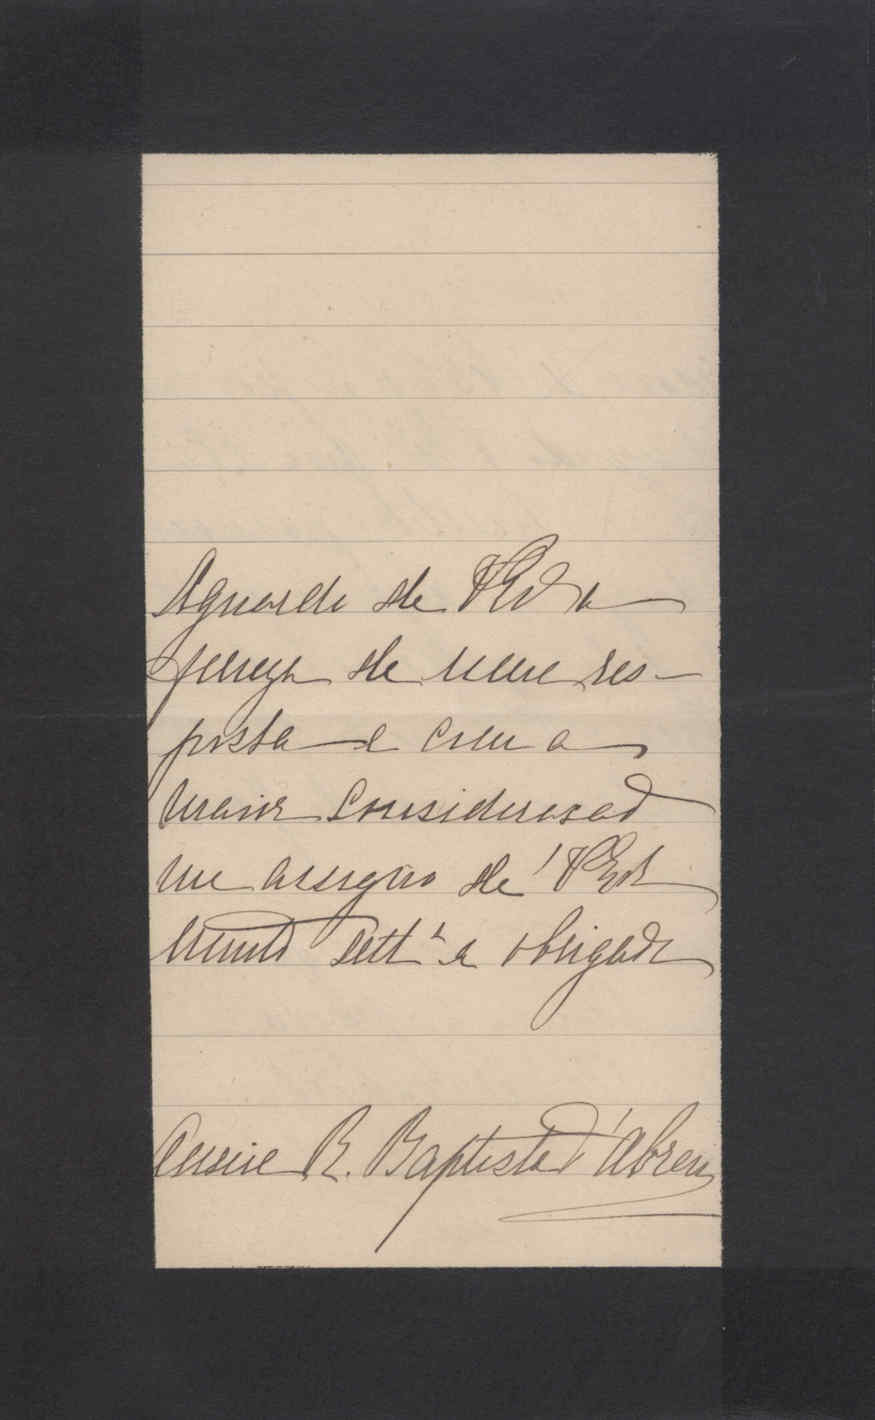 Aguardo de VExa a
fineza de uma res-
posta e com a
maior considerasaõ
me assigno de VExa
Muito Attª e obrigada
Annie R. Baptista d'Abreu